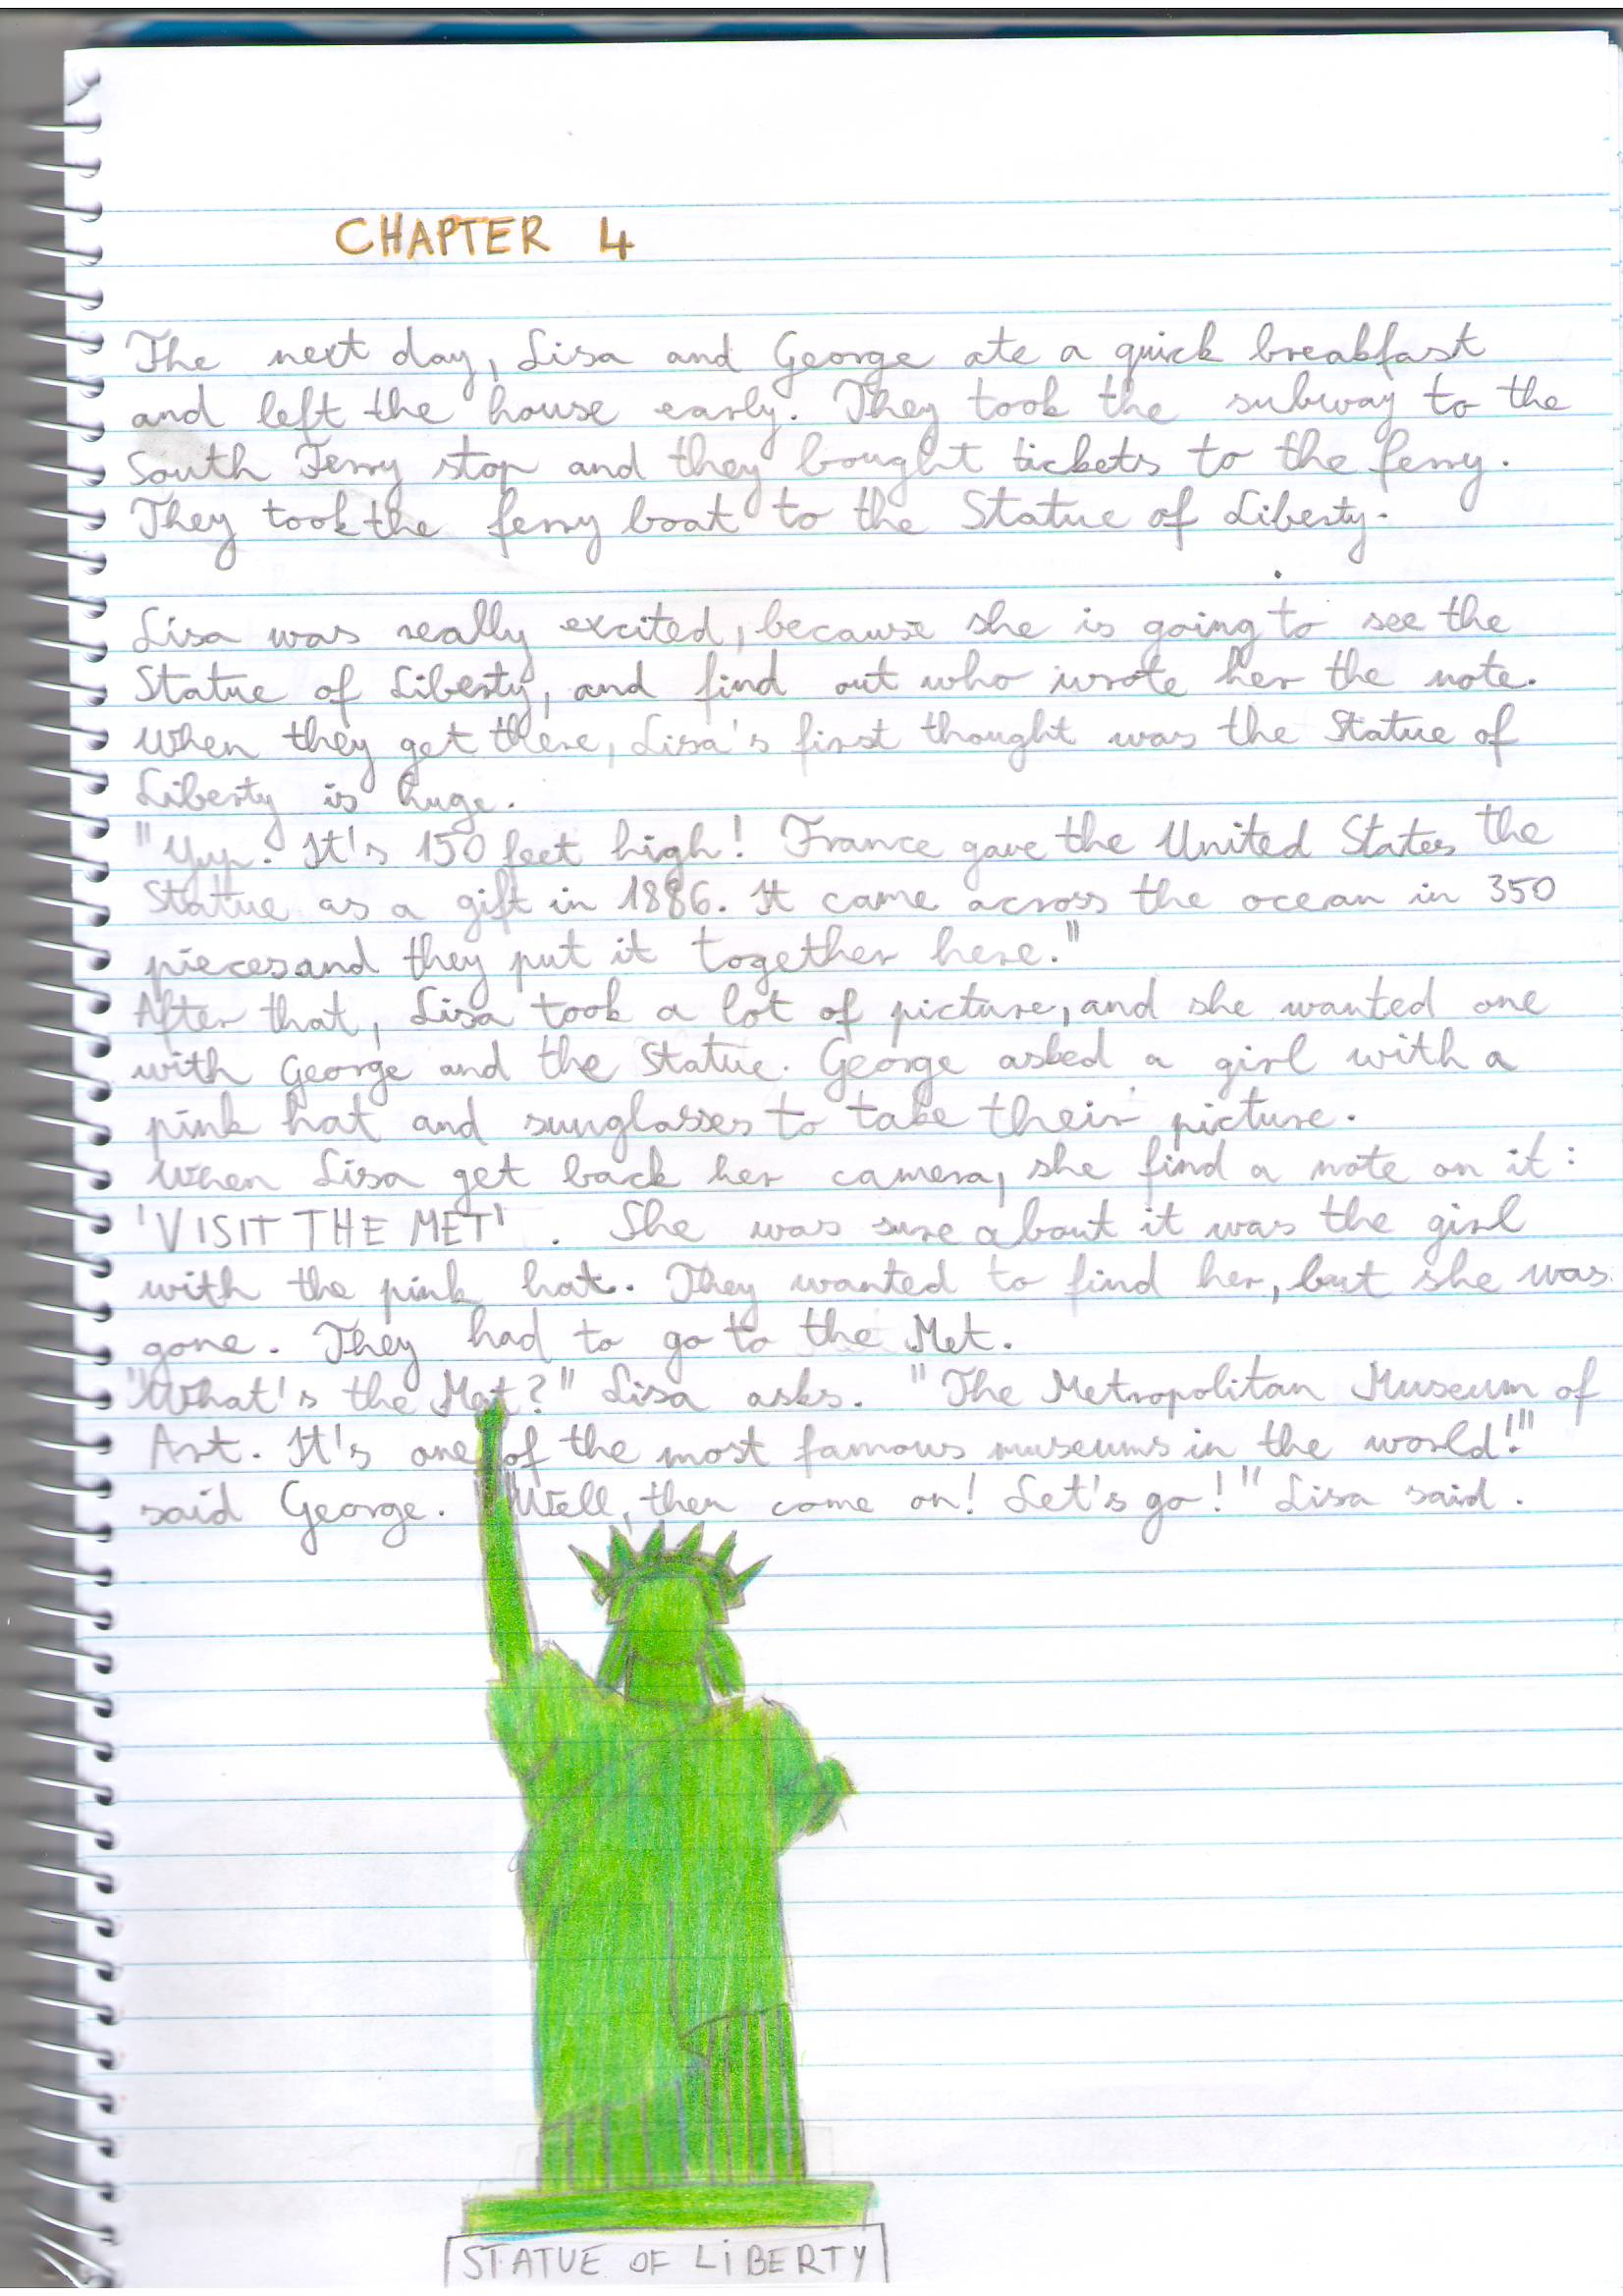 CHAPTER 4
The next day, Lisa and George ate a quick breakfast
and left the house early. They took the subway to the
South Ferry stop and they bought tickets to the ferry.
They took the ferry boat to the Statue of Liberty.
Lisa was really excited, because she is going to see the
Statue of Liberty, and find out who wrote her the note.
When they get there, Lisa's first thought was the Statue of
Liberty is huge.
"Yup. It's 150 feet high! France gave the United States the
Statue as a gift in 1886. It came across the ocean in 350
pieces and they put it together here."
After that, Lisa took a lot of picture, and she wanted one
with George and the Statue. George asked a girl with a
pink hat and sunglasses to take their picture.
When Lisa get back her camera, she find a note on it:
'VISIT THE MET'. She was sure about it was the girl
with the pink hat. They wanted to find her, but she was
gone. They had to go to the Met.
"What's the Met?" Lisa asks. "The Metropolitan Museum of
Art. It's one of the most famous museums in the world!"
said George. "Well, then come on! Let's go!" Lisa said.
STATUE OF LiBERTY